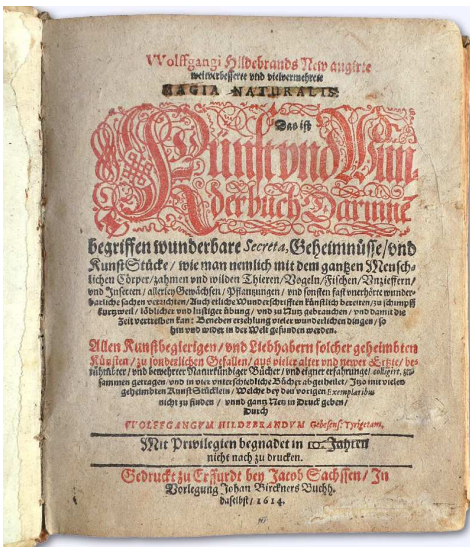 VVolffgangi Hildebrands New augirte
weitverbesserte vnd vielvermehrete
MAGIA NATURALIS
Das ist
Kunst vnd Wun
derbuch Darinnē
begriffen wunderbare Secreta, Geheimnüsse/vnd
KunstStücke/ wie man nemlich mit dem gantzen Mensch-
lichen Cörper/zahmen vnd wilden Thieren/Vogeln/Fischen/Vnzieffern/
vnd Insecten/allerley Gewächsen/Pflantzungen/ vnd sonsten fast vnerhörte wunder-
barliche sachen verrichten/Auch etliche Wunderschrifften künstlich bereiten/zu schimpff
kurtzweil/ löblicher vnd lustiger übung/ vnd zu Nutz gebrauchen/ vnd damit die
Zeit vertreiben kan: Beneben erzehlung vieler wunderlichen dingen/ so
hin vnd wider in der Welt gefunden werden.
Allen Kunstbegierigen/ vnd Liebhabern solcher geheimbten
Künsten/ zu sonderlichen Gefallen/ aus vieler alter vnd newer Ertzte/ be-
rühmbter/ vnd bewehrter Naturkündiger Bücher/ vnd eigner erfahrung/ colligirt, zu-
sammen getragen/ vnd in vier vnterschiedliche Bücher abgetheilet/ Itzo mit vielen
geheimbten KunstStücklein/ Welche bey den vorigen Exemplaribus
nicht zu finden/ vnnd gantz New in Druck geben/
Durch
VVOLFFGANGVM HILDEBRANDVM Gebesens: Tyrigetam.
Mit Privilegien begnadet in 10. Jahren
nicht nach zu drucken.
Gedruckt zu Erffurdt bey Jacob Sachssen/ In
Vorlegung Johan Birckners Buchh.
daselbst/ 1614.